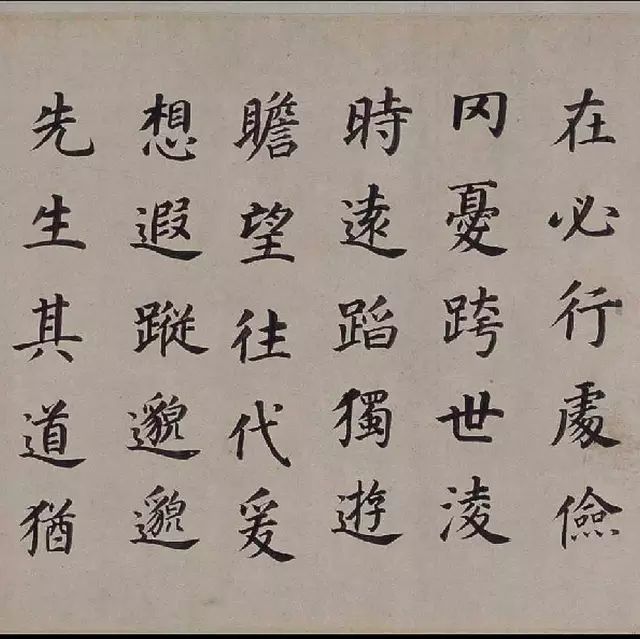 在必行處儉
冈憂跨世淩
時遠蹈獨遊
瞻望往代爰
想遐蹤邈邈
先生其道猶